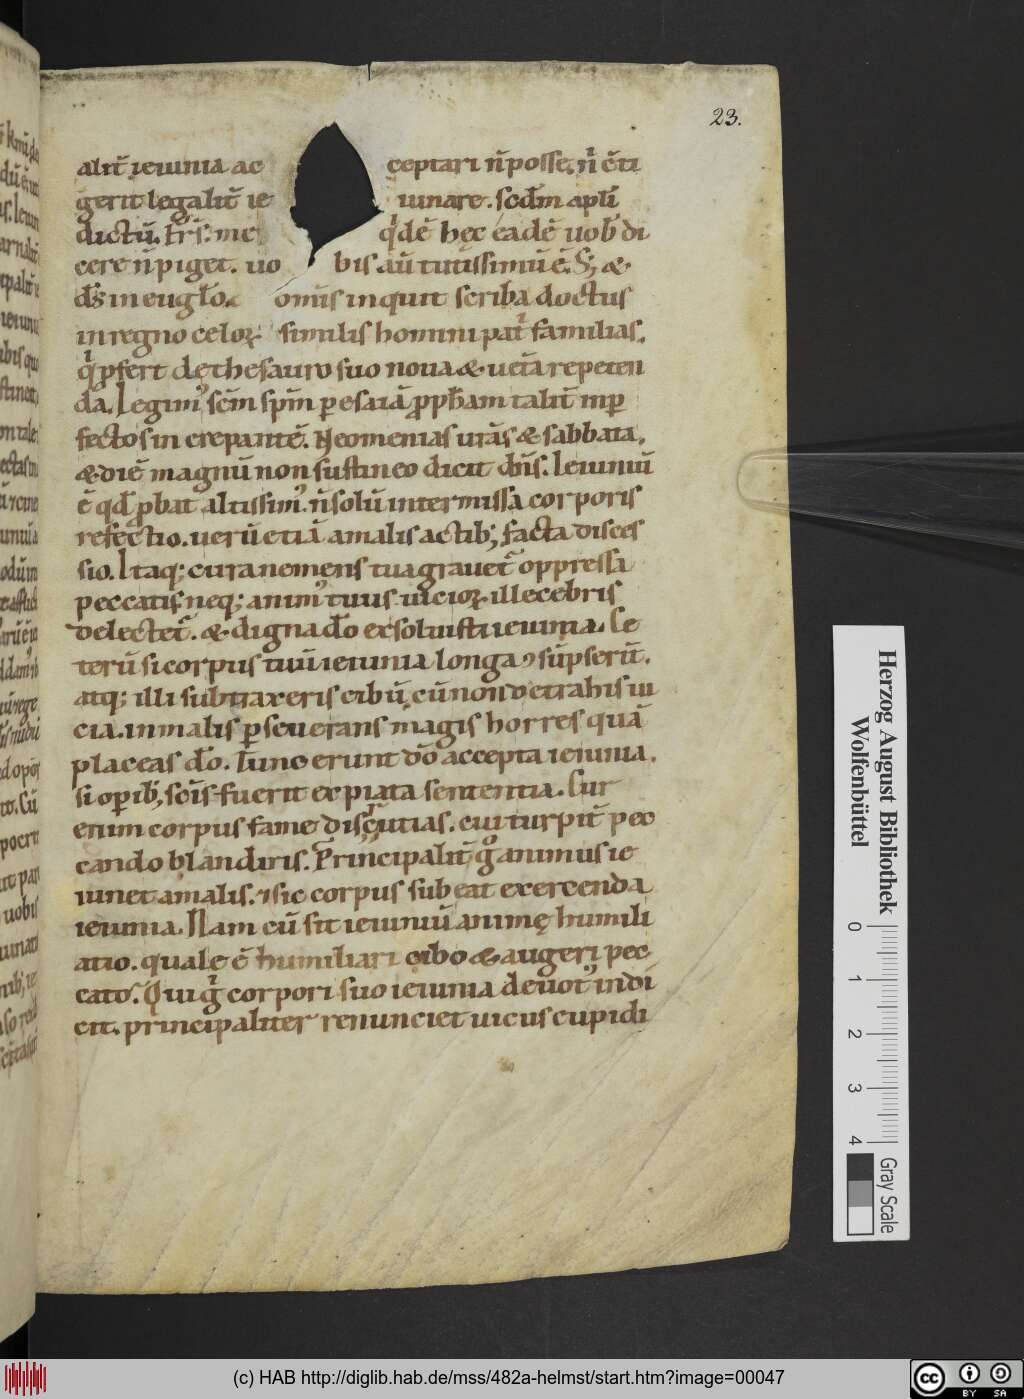 23.
alit̄ ieiunia ac ceptari n̄ posse, n̄ ēti
gerit legalit̄ ie iunare. scdm̄ apl̄i
dictū. fr̄s. me qͥdē hęc eadē uob̄ di
cere n̄ piget. uo bis aū tutissimū ē. S; &
dn̄s in euglo. omīs inquit scriba doctus
in regno celoꝝ similis homini pat̄ familias.
qͥ ꝓfert de thesauro suo noua & uet̄a repeten
da. Legimꝰ scm̄ spm̄ ꝑ esaiā ꝓph̄am talit̄ inꝑ
fectos increpantē. Neomenias urās & sabbata,
& diē magnū non sustineo dicit dn̄s. Ieiuniū
ē qd̄ ꝓbat altissimꝰ. n̄ solū intermissa corporis
refectio. uerū etiā a malis actib; facta disces
sio. Itaq; cura ne mens tua grauet᷑ oppressa
peccatis, neq; animꝰ tuus uicioꝝ illecebris
delectet᷑. & digna do exsoluisti ieiunia. Ce
terū si corpus tuū ieiunia longa ꝯsūpserīt.
atq; illi subtraxeris cibū, cū non detrahis ui
cia. in malis ꝑseuerans magis horres quā
placeas do. Tunc erunt do accepta ieiunia.
si oꝑib; scīs fuerit expiata sententia. Cur
enim corpus fame discrutias. cui turpit̄ pec
cando blandiris. Principalit̄ gͦ animus ie
iunet a malis. ⁊ sic corpus subeat exercenda
ieiunia. Nam cū sit ieiuniū animę humili
atio. quale ē humiliari cibo & augeri pec
catoꝭ. Qui gͥ corpori suo ieiunia deuotꝰ indi
cit. principaliter renunciet uicus cupidi
Herzog August Bibliothek
Wolfenbüttel
0 1 2 3 4
Gray Scale
(c) HAB http://diglib.hab.de/mss/482a-helmst/start.htm?image=00047
cc BY SA